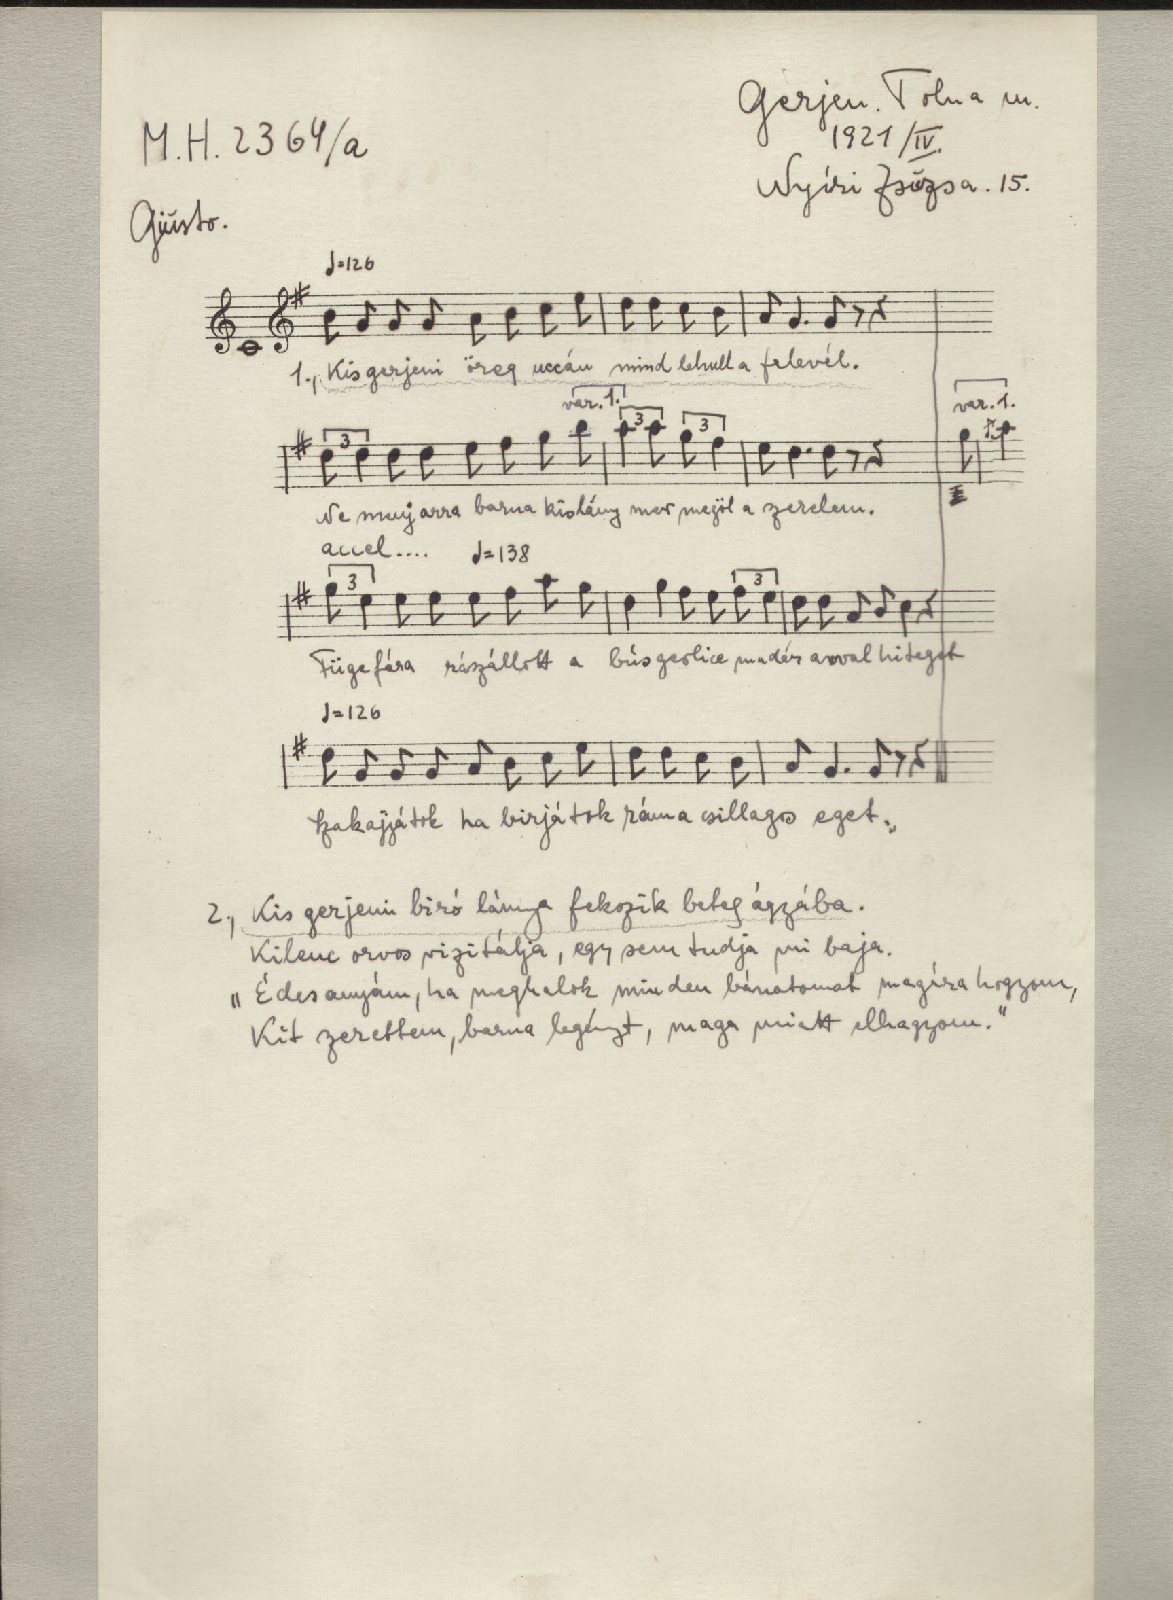 Gerjen. Tolna m.
M.H. 2364/a
1921/IV.
Nyíri Zsúzsa. 15.
Giusto.
♩=126
1., Kis gerjeni öreg uccán mind lehull a felevél.
var. 1. var. 1.
3 3 3
Ne menj arra barna kislány mer megöl a zerelem.
accel.... ♩=138
3 3
Fügefára rászállott a bús gerlice madár avval hiteget
♩=126
Szakajjátok ha birjátok ráma csillagos eget.„
2., Kis gerjeni biró lánya fekszik beteg ágyába.
Kilenc orvos vizitálja, egy sem tudja mi baja.
„Édesanyám, ha meghalok minden bánatomat magára hagyom,
Kit zerettem, barna legényt, maga miatt elhagyom."